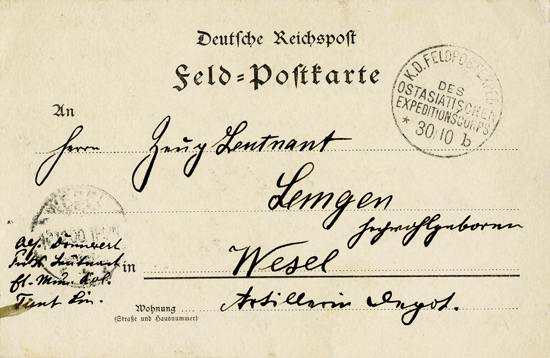 Deutsche Reichspost
Feld=Postkarte
K.D. FELDPOSTEXPED.
DES
OSTASIATISCHEN
EXPEDITIONSCORPS
* 30/10 b
An
Herrn Zeug Leutnant
Lemgen
Hochwohlgeboren
WESEL
Abs. Donnert
in Wesel
Tient Sin.
Artillerie Depot.
Wohnung
(Straße und Hausnummer)